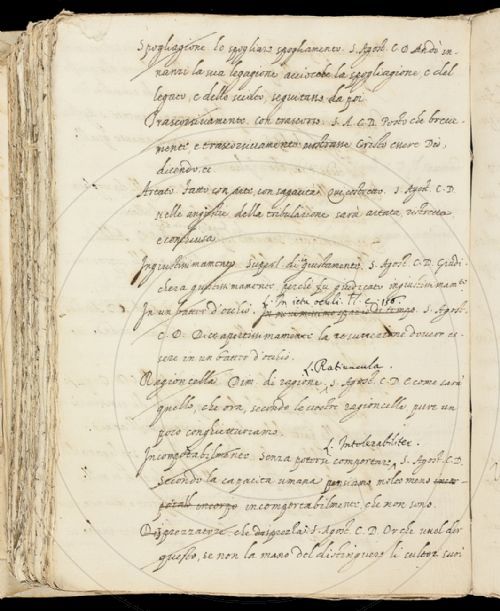 Spogliagione lo spogliare spogliamento. S. Agost. C. D. Andò in-
nanzi la sua legagione acciocchè la spogliagione, e del
legato, e dello sciolto, seguitano da poi.
Trascorsivamente. con trascorso. S. A. C. D. Posto che breve-
mente e trascorsivamente mostrasse Cristo essere Dio,
dicendo, ec
Artato. fatto con arte, con sagacità. S. Agost. C. D.
nelle angustie della tribulazione sarà artata, ristretta,
e confusa
Ingiustissimamente. Superl. di giustamente. S. Agost. C. D. Giudi-
cherà giustissimamente perchè fu giudicato ingiustissimamte
In un batter d'occhio. L. In ictu oculi. S. Agost.
C. D. Dice apertissimamente la resurrezione dover es-
sere in un batter d'occhio.
L. Ratiuncula.
Ragioncella Dim. di ragione. S. Agost. C. D. E come sarà
quello, che ora, secondo le nostre ragioncelle pure un
poco conghietturiamo.
L. Intolerabiliter.
Incomportabilmente. Senza potersi comportare. S. Agost. C. D.
Secondo la capacità umana pensiamo molto meno
incomportabilmente, che non sono.
Disprezzatore che disprezza. S. Agost. C. D. Or che vuol dir
questo, se non la mano del distinguere li cultori suoi